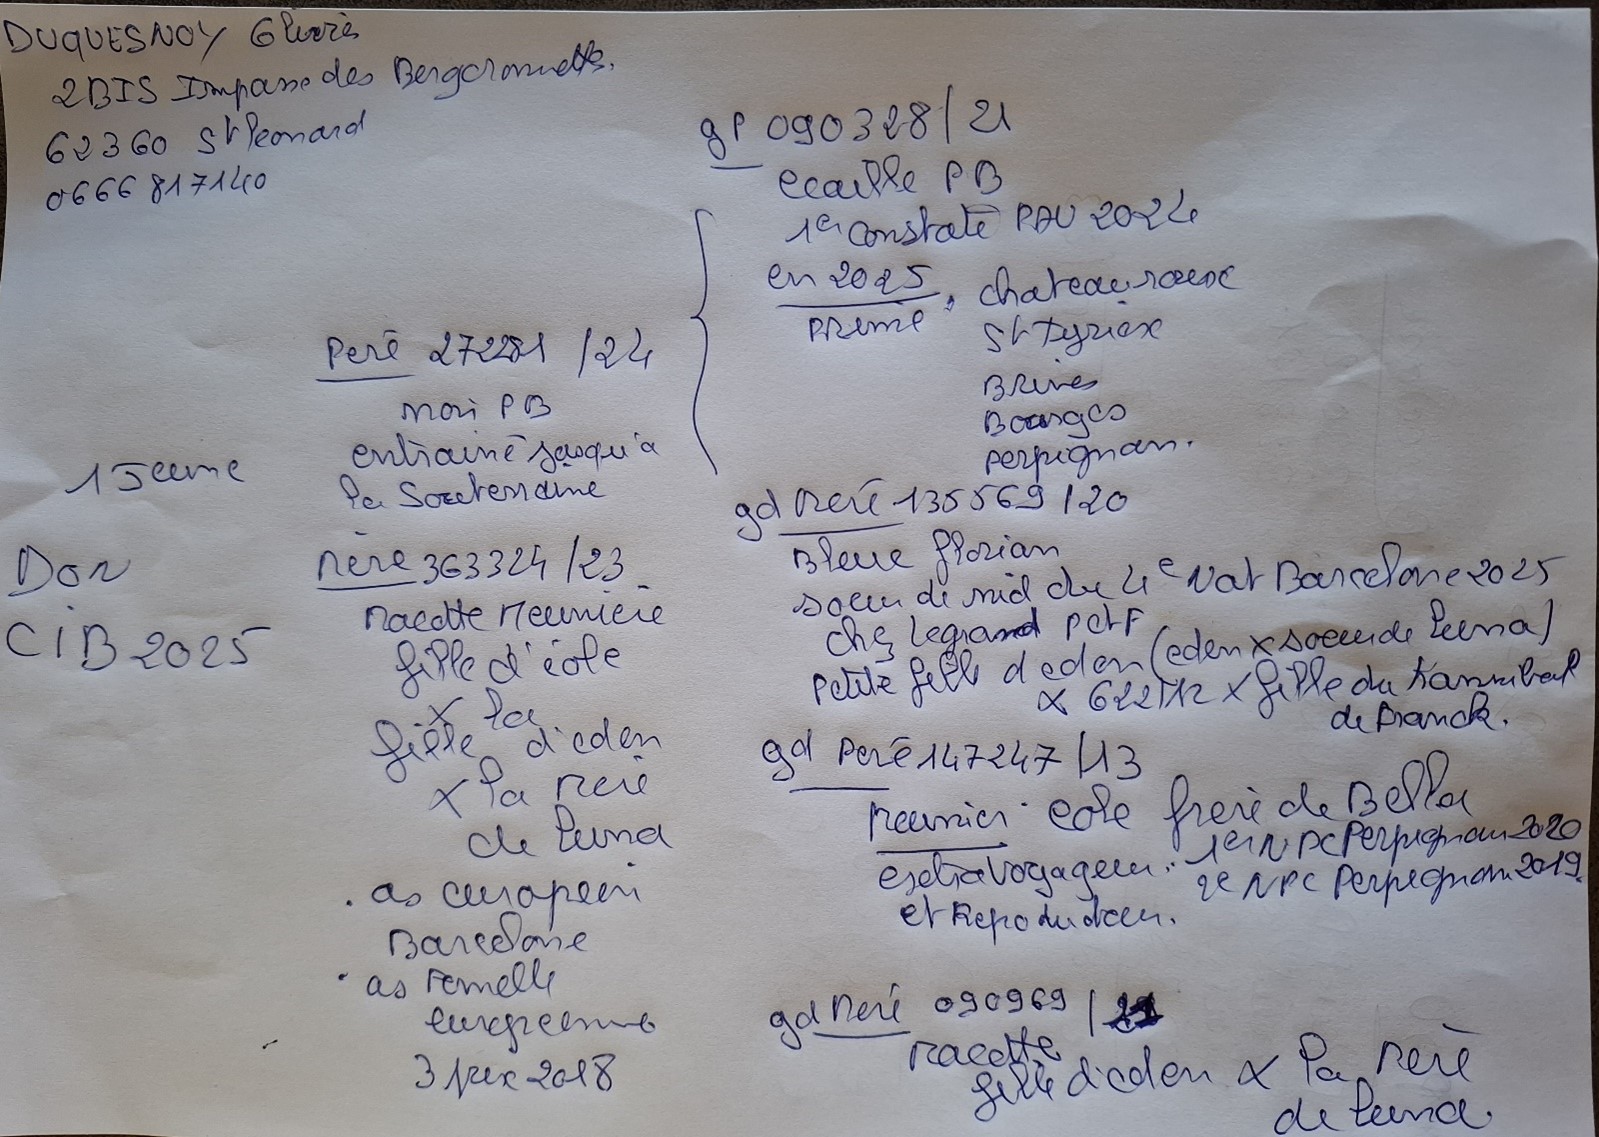 DUQUESNOY
2BIS Impasse des Bergeronnettes.
62360 St Leonard
0666817140
gP 090328/21
ecaille PB
1er Constaté PAU 2024
en 2025, chateauroux
PRIMÉ St Yyriex
Brives
Bourges
perpignan.
Peré 272281 /24
noir PB
entrainé jusqu'a
la Souterraine
1 Jeune
Don
CIB 2025
gd Meré 135569 /20
Bleue florian
soeur de nid du 4e Nat Barcelone 2025
chez Legrand PCtF
petite fille d'eden (eden x soeur de Luna)
x x fille du Kannibal
de Franck.
Mère 363324 /23
Macotte Meuniere
fille d'éole
x la
fille d'eden
x la Meré
de Luna
. as européen
Barcelone
. as Femelle
européenne
3 prix 2018
gd Peré 147247 /13
Meunier eole freré de Bella
extra Voyageur. 1er NPC Perpignan 2020
2e NPC Perpignan 2019.
et Reproducteur.
gd Meré 090969 /21
Macotte
fille d'eden x la Merè
de Luna.